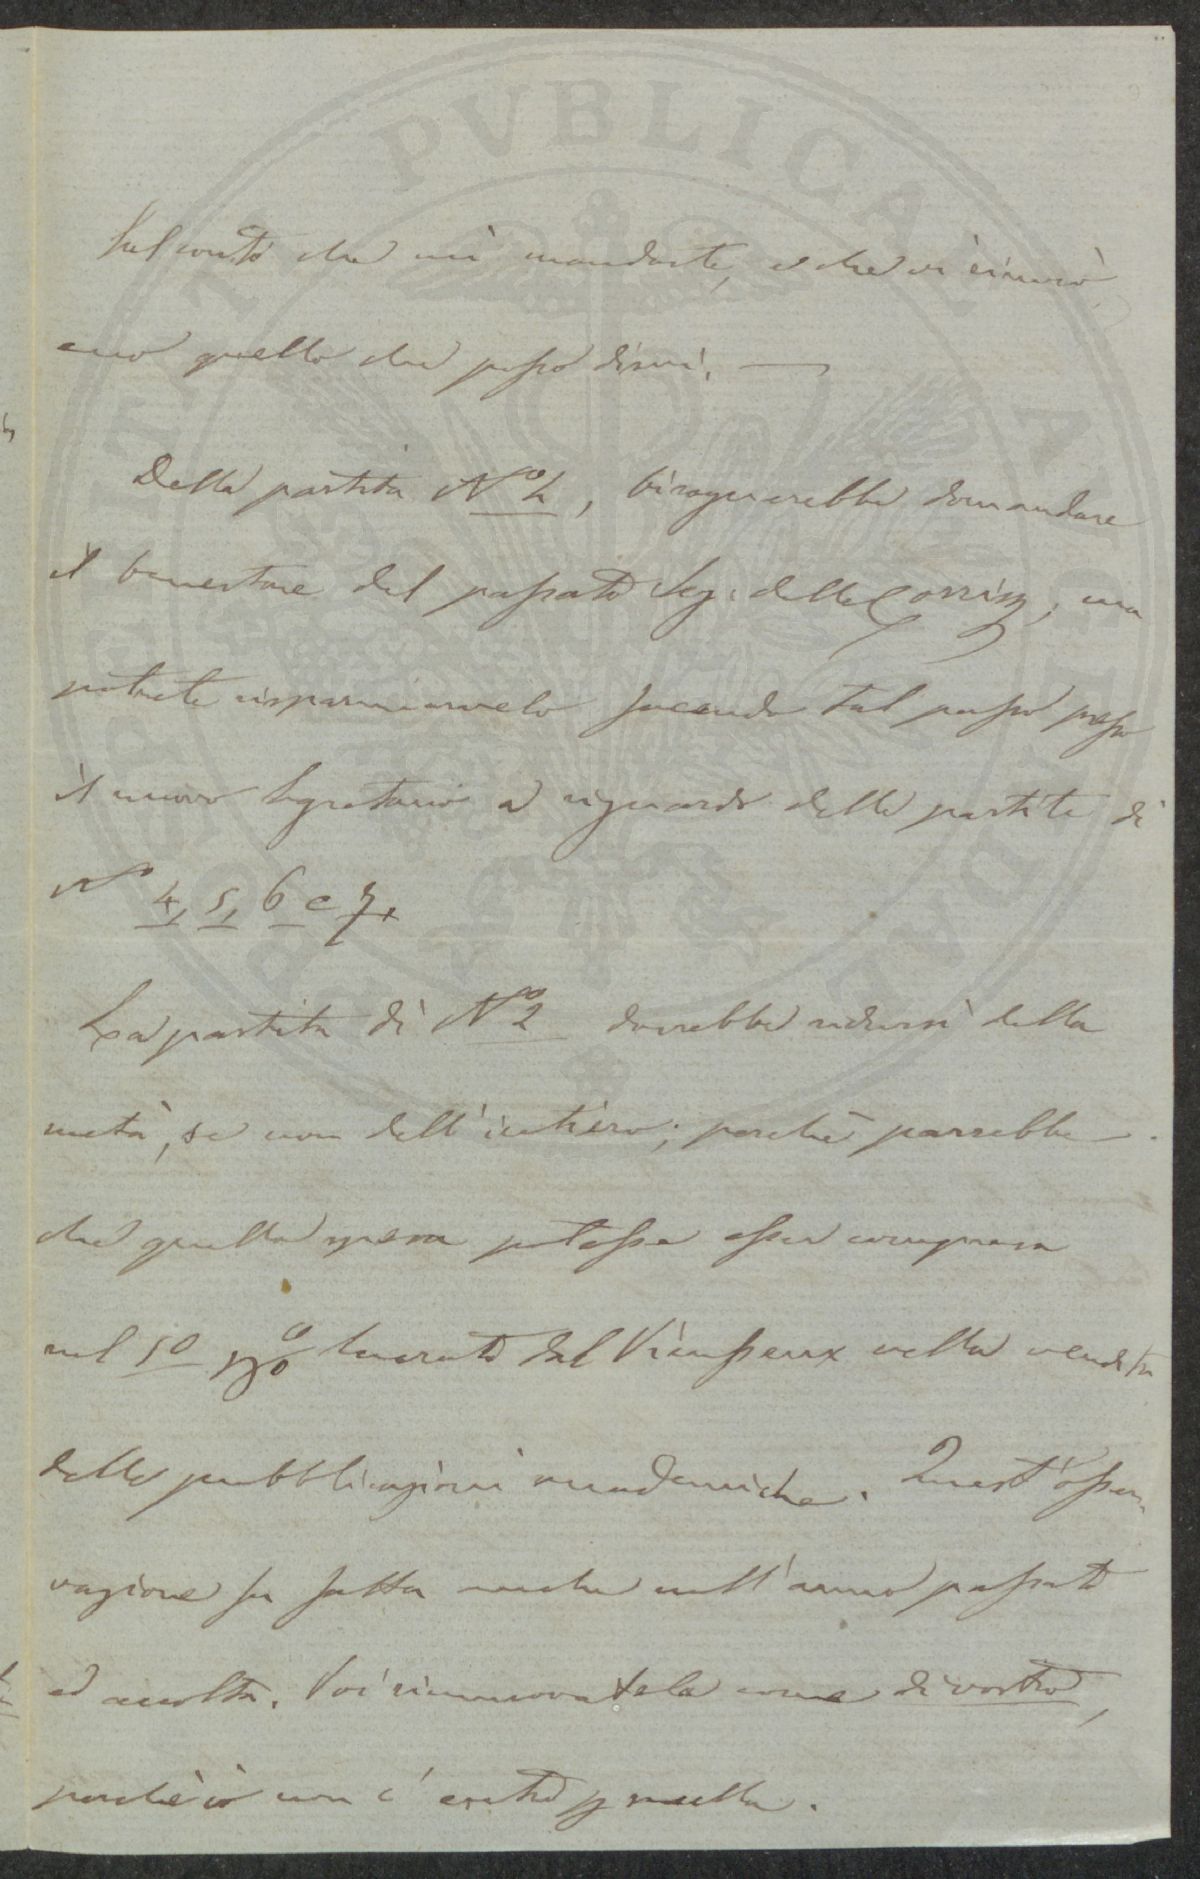 Sul conto che mi mandaste, e che vi rinviò,
ecco quello che posso dirvi. —
Della partita Nº 1, bisognerebbe domandare
il benestare del passato Seg. delle Corrisp; ma
potrete risparmiarvelo facendo tal passo presso
il nuovo Segretario a riguardo delle partite di
Nº 4, 5, 6 e 7.
La partita di Nº 2 dovrebbe ridursi della
metà, se non dell'intiero; perchè parrebbe
che quella spesa potesse esser compresa
nel 50 p% lucrato dal Vieusseux nella vendita
delle pubblicazioni accademiche. Quest'osser-
vazione fu fatta anche nell'anno passato
ed accolta. Voi rinnuovatela come di vostro,
perchè io non c'entro p nulla.
PVBLICAE